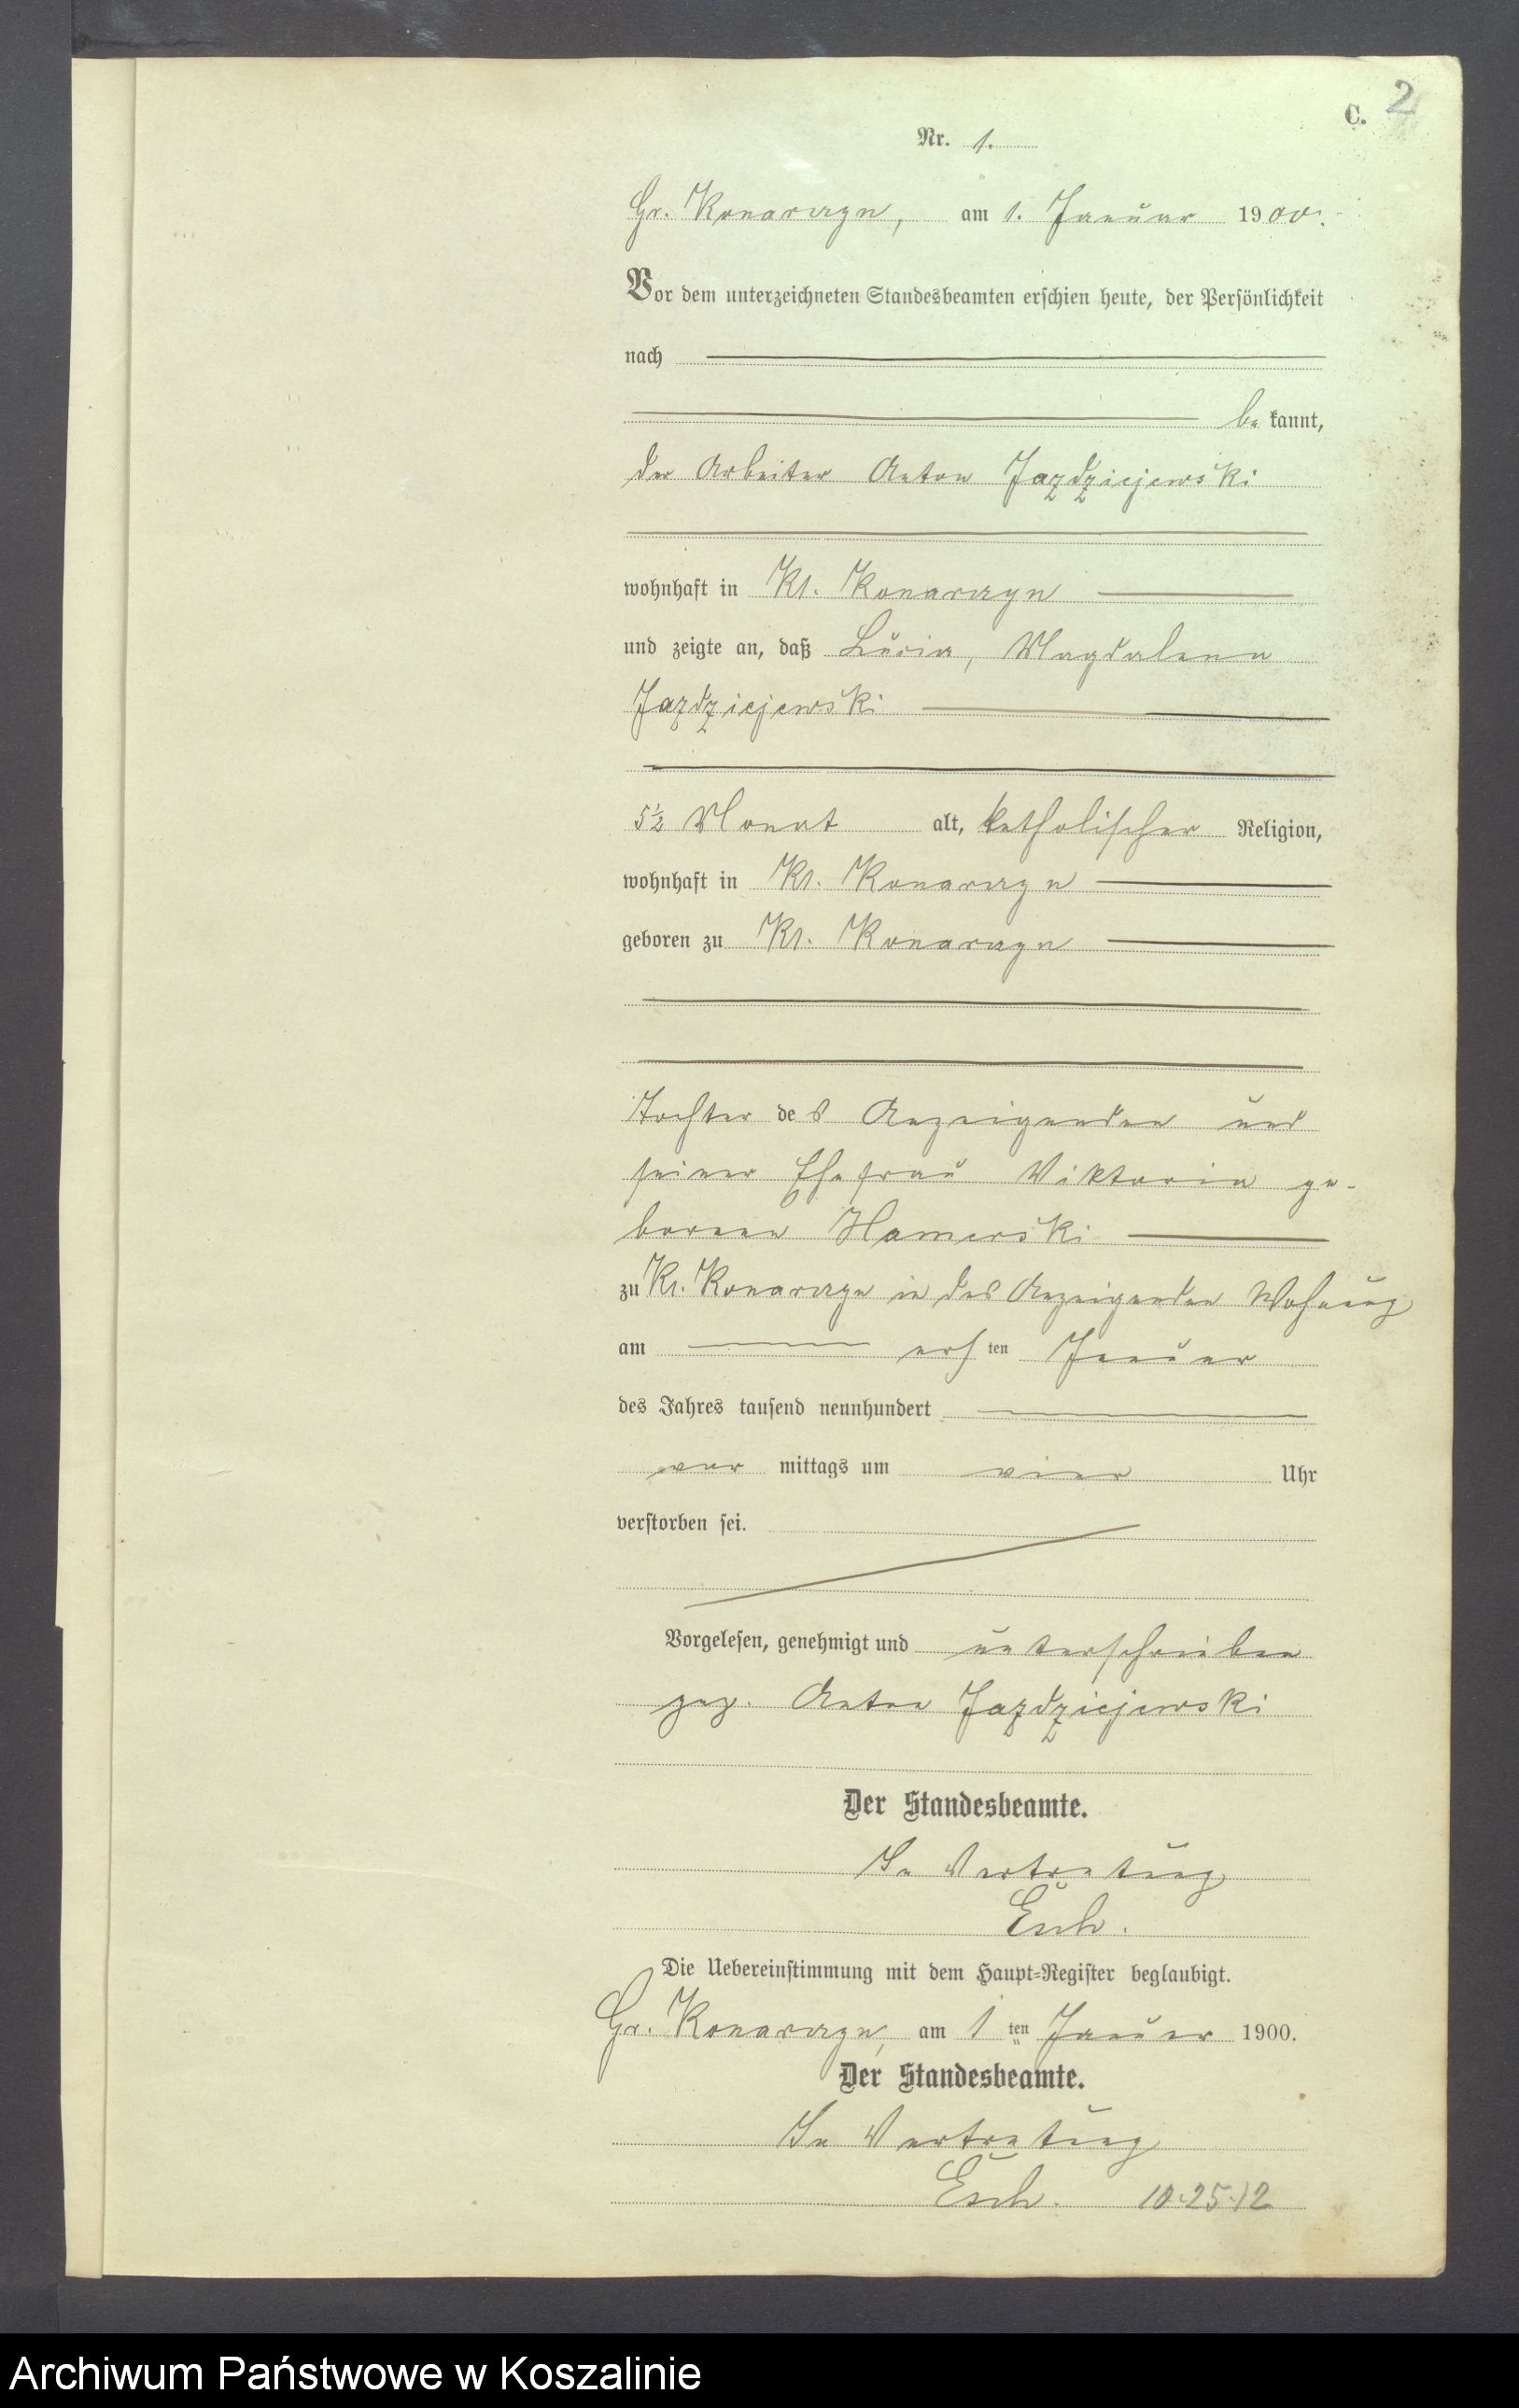 C. 2
Nr. 1.
Gr. Konarczyn, am 1. Januar 1900.
Vor dem unterzeichneten Standesbeamten erschien heute, der Persönlichkeit
nach
be kannt,
der Arbeiter Anton Jazdziejewski
wohnhaft in Kl. Konarczyn
und zeigte an, daß Lucia, Magdalena
Jazdziejewski
5½ Monat alt, katholischer Religion,
wohnhaft in Kl. Konarczyn
geboren zu Kl. Konarczyn
Tochter des Anzeigenden und
seiner Ehefrau Viktoria ge-
borenen Hamerski
zu Kl. Konarczyn in des Anzeigenden Wohnung
am ersten Januar
des Jahres tausend neunhundert
vor mittags um vier Uhr
verstorben sei.
Vorgelesen, genehmigt und unterschrieben
gez. Anton Jazdziejewski
Der Standesbeamte.
In Vertretung
Esch.
Die Uebereinstimmung mit dem Haupt-Register beglaubigt.
Gr. Konarczyn, am 1 ten Januar 1900.
Der Standesbeamte.
In Vertretung
Esch. 10.25.12
Archiwum Państwowe w Koszalinie